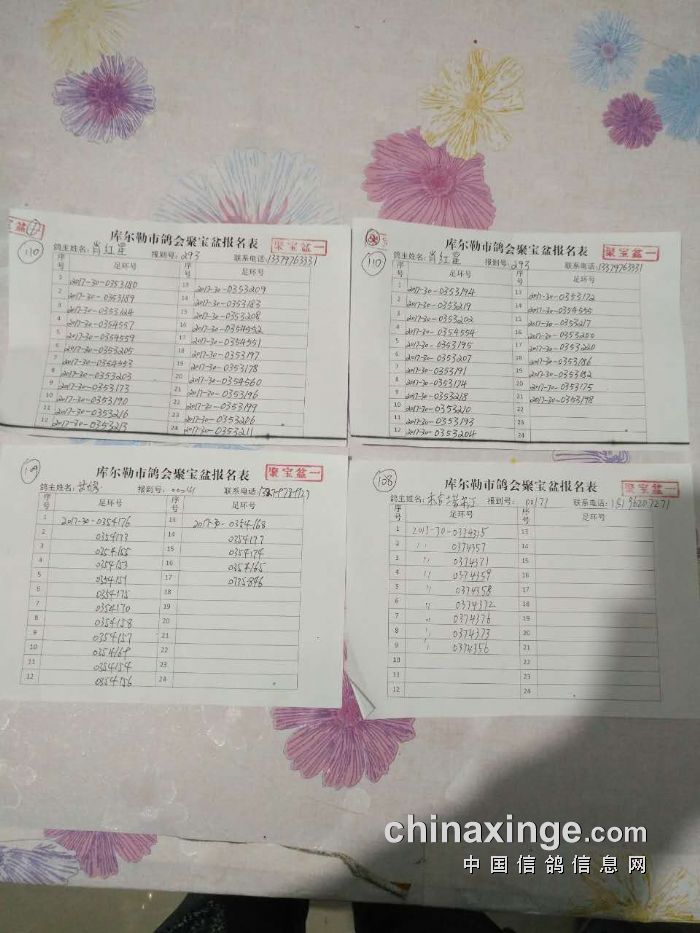 110
库尔勒市鸽会聚宝盆报名表
聚宝盆一
鸽主姓名: 肖红星 报到号: 293 联系电话:13379763331
序号 足环号 序号 足环号
1 2017-30-0353180 13 2017-30-0353209
2 2017-30-0353189 14 2017-30-0353183
3 15 2017-30-0353208
4 2017-30-0354557 16 2017-30-0354552
5 2017-30-0354559 17 2017-30-0354551
6 2017-30-0353205 18 2017-30-0353197
7 2017-30-0354553 19 2017-30-0353178
8 2017-30-0353203 20 2017-30-0354560
9 2017-30-0353173 21 2017-30-0353196
10 2017-30-0353190 22 2017-30-0353199
11 2017-30-0353216 23 2017-30-0353206
12 2017-30-0353213 24 2017-30-0353211
110
库尔勒市鸽会聚宝盆报名表
聚宝盆一
鸽主姓名: 肖红星 报到号: 293 联系电话:13379763331
序号 足环号 序号 足环号
1 2017-30-0353194 13 2017-30-0353172
2 2017-30-0353219 14 2017-30-0354555
3 2017-30-0353202 15 2017-30-0353217
4 2017-30-0354554 16 2017-30-0353200
5 2017-30-0353195 17 2017-30-0353220
6 2017-30-0353207 18 2017-30-0353186
7 2017-30-0353191 19
8 2017-30-0353174 20 2017-30-0353175
9 2017-30-0353218 21 2017-30-0353198
10 2017-30-0353210 22
11 2017-30-0353193 23
12 2017-30-0353204 24
109
库尔勒市鸽会聚宝盆报名表
聚宝盆一
鸽主姓名: 报到号: 联系电话:
序号 足环号 序号 足环号
1 2017-30-0354176 13 2017-30-0354168
2 0354173 14 0354177
3 0354155 15 0354174
4 0354153 16 0354165
5 0354151 17 0775896
6 0354175 18
7 0354170 19
8 0354158 20
9 0354157 21
10 0354169 22
11 0354154 23
12 0354156 24
108
库尔勒市鸽会聚宝盆报名表
聚宝盆一
鸽主姓名: 报到号: 0171 联系电话: 18196207271
序号 足环号 序号 足环号
1 2017-30-0374315 13
2 〃 0374357 14
3 〃 0374371 15
4 〃 0374359 16
5 〃 0374358 17
6 〃 0374372 18
7 〃 0374376 19
8 〃 0374373 20
9 〃 0374356 21
10 22
11 23
12 24
chinaxinge.com
中国信鸽信息网